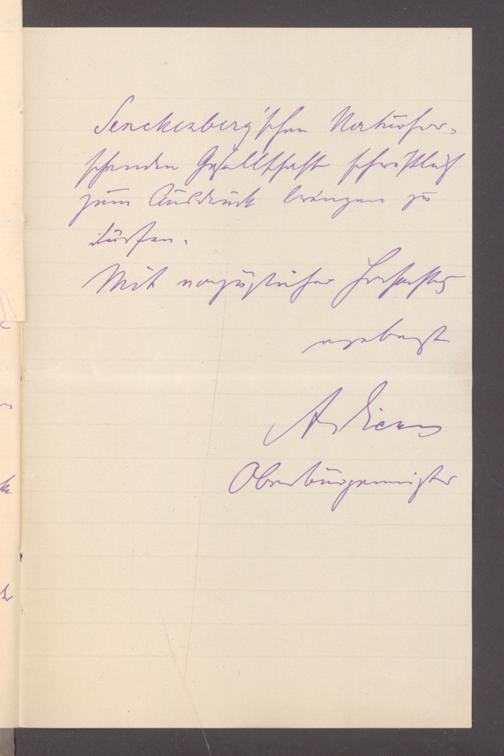 Senckenberg'schen Naturfor-
schenden Gesellschaft schriftlich
zum Ausdruck bringen zu
dürfen.
Mit vorzüglicher Hochachtung
ergebenst
Adickes
Oberbürgermeister